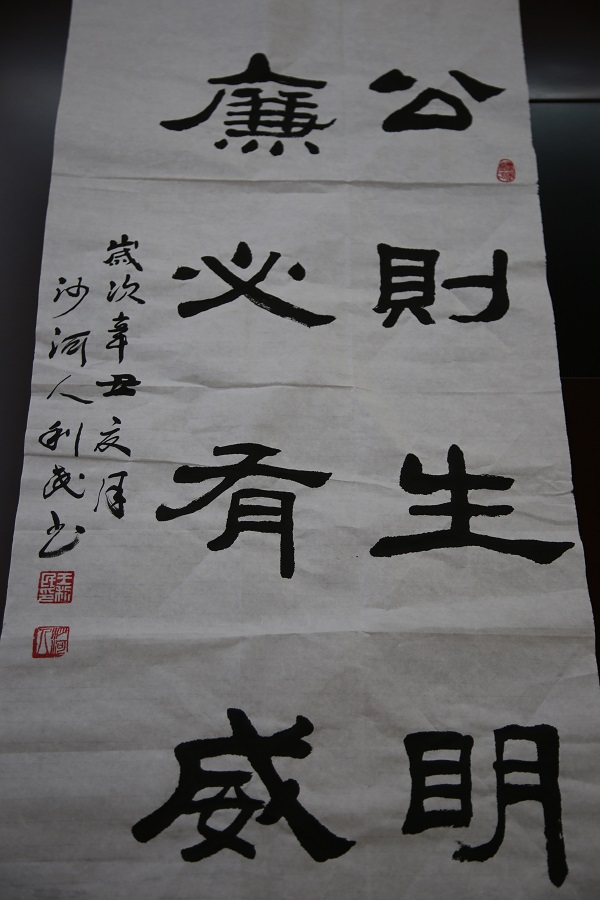 公則生明
廉必有威
歲次辛丑夏月
沙河人利民书